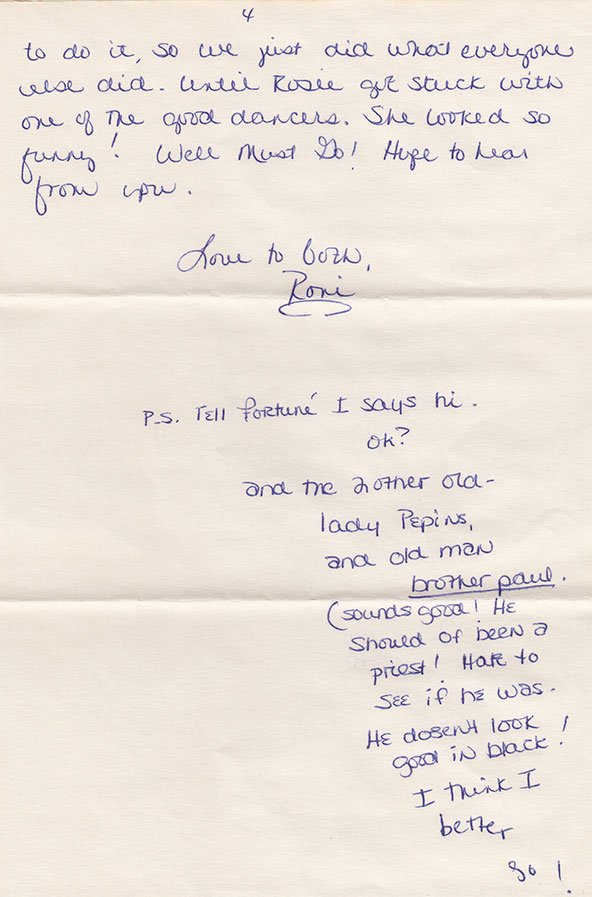 4
to do it, so we just did what everyone
else did. Until Rosie get stuck with
one of the good dancers. She looked so
funny! Well Must Go! Hope to hear
from you.
Love to both,
Roni
P.S. Tell Fortuné I says hi.
ok?
and the 2 other old-
lady Pepins,
and old man
brother paul.
(sounds good! He
should of been a
priest! Hate to
see if he was.
He dosent look
good in black!
I think I
better
go!